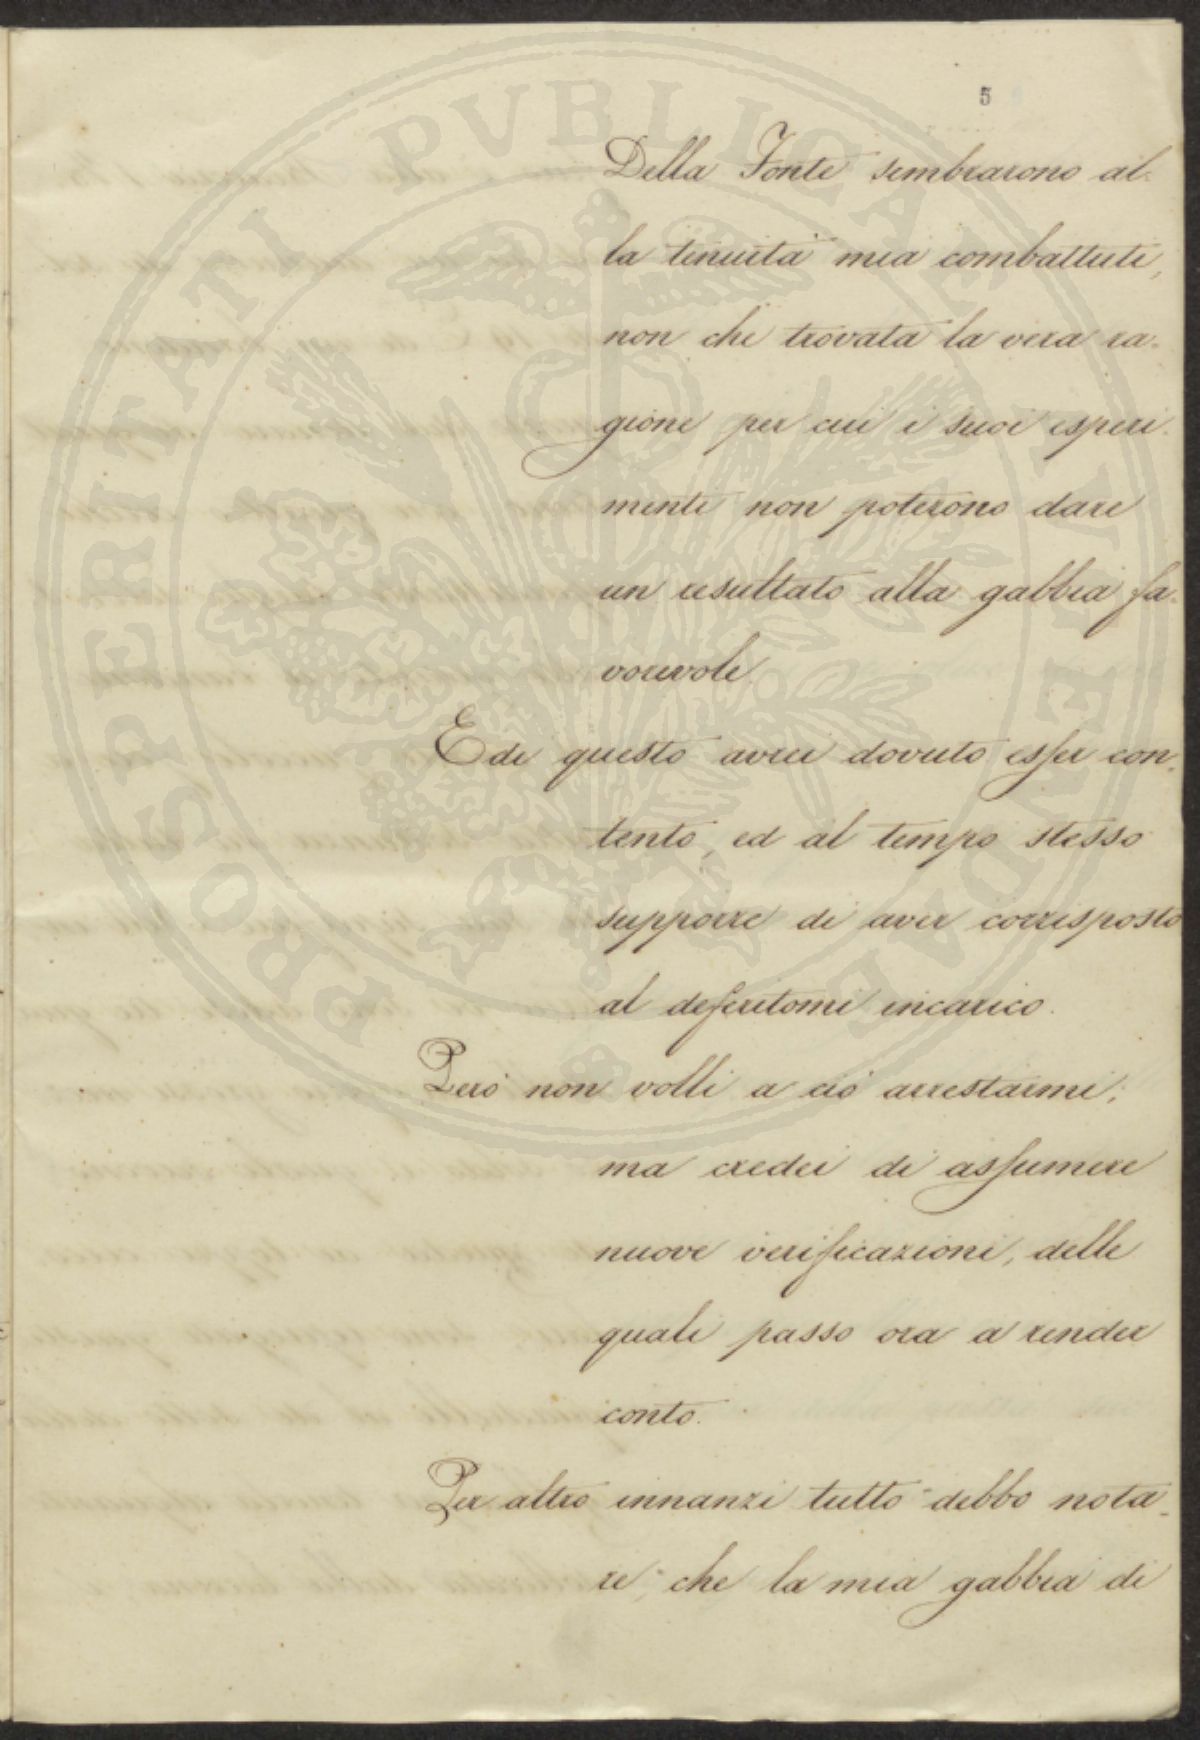 5
Della Fonte sembrarono al-
la tenuità mia combattuti,
non che trovata la vera ra-
gione per cui i suoi esperi-
menti non poterono dare
un resultato alla gabbia fa-
vorevole
E di questo avrei dovuto esser con-
tento, ed al tempo stesso
supporre di aver corrisposto
al deferitomi incarico.
Però non volli a ciò arrestarmi;
ma credei di assumere
nuove verificazioni, delle
quali passo ora a render
conto.
Per altro innanzi tutto debbo nota-
re, che la mia gabbia di
PROSPERITATI PVBLICAE AVGENDAE